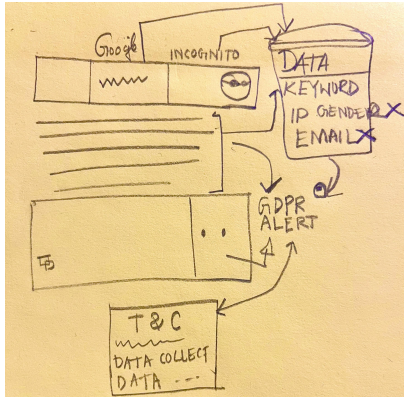 Google
INCOGNITO
DATA
KEYWORD
IP GENDER X
EMAIL X
GDPR
ALERT
T & C
DATA COLLECT
DATA ...